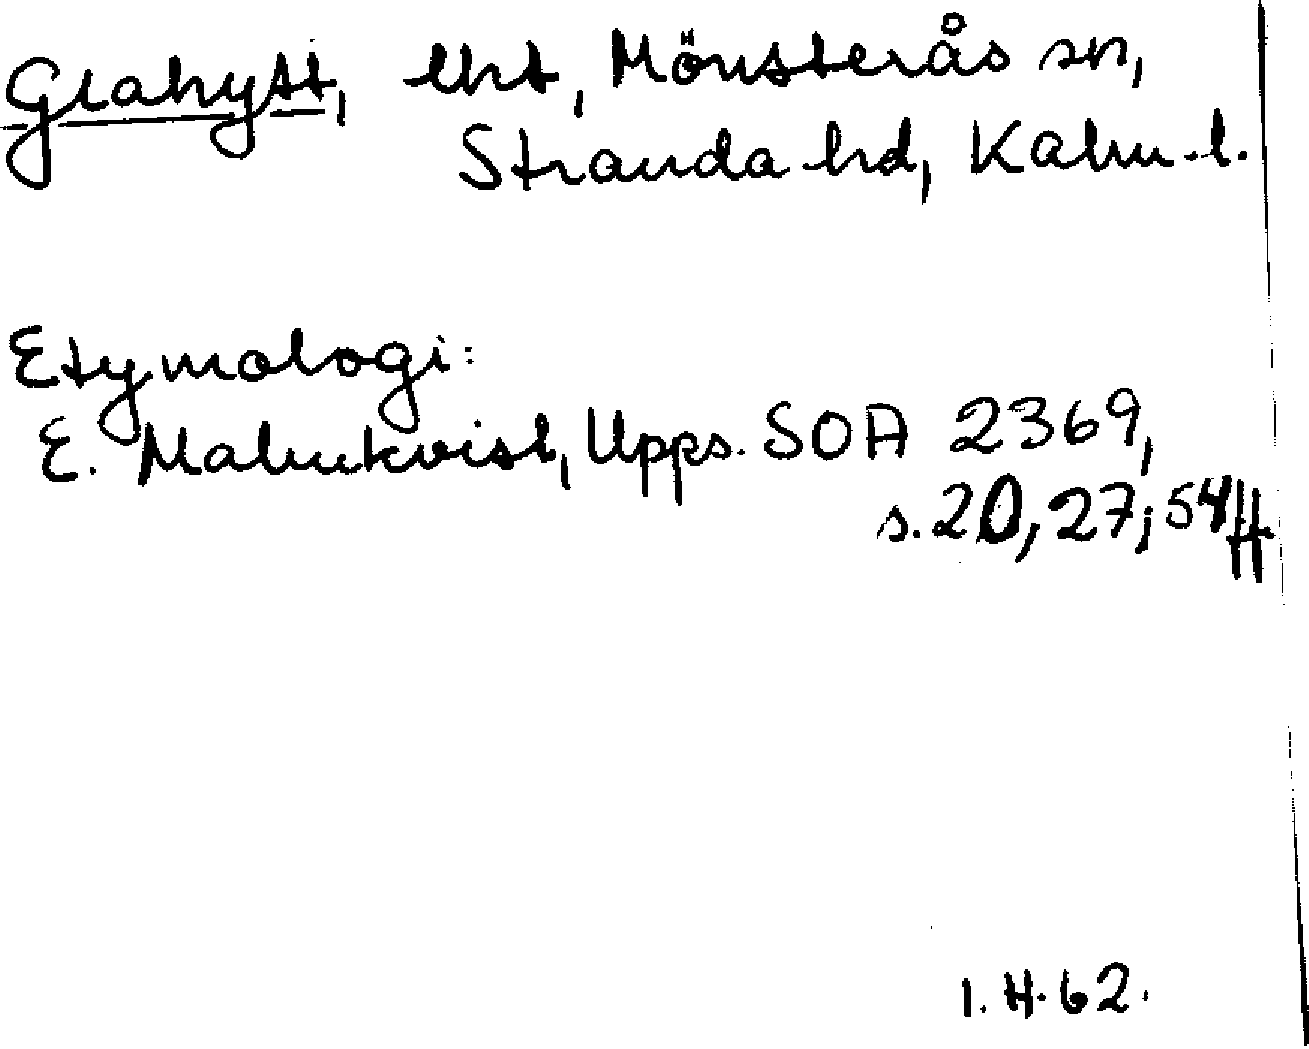 Grahytt, lht, Mönsterås sn,
Stranda hd, Kalm. l.
Etymologi:
E. Malmkvist, Upps. SOA 2369,
s. 20, 27; 54 ff.
I. H. 62.